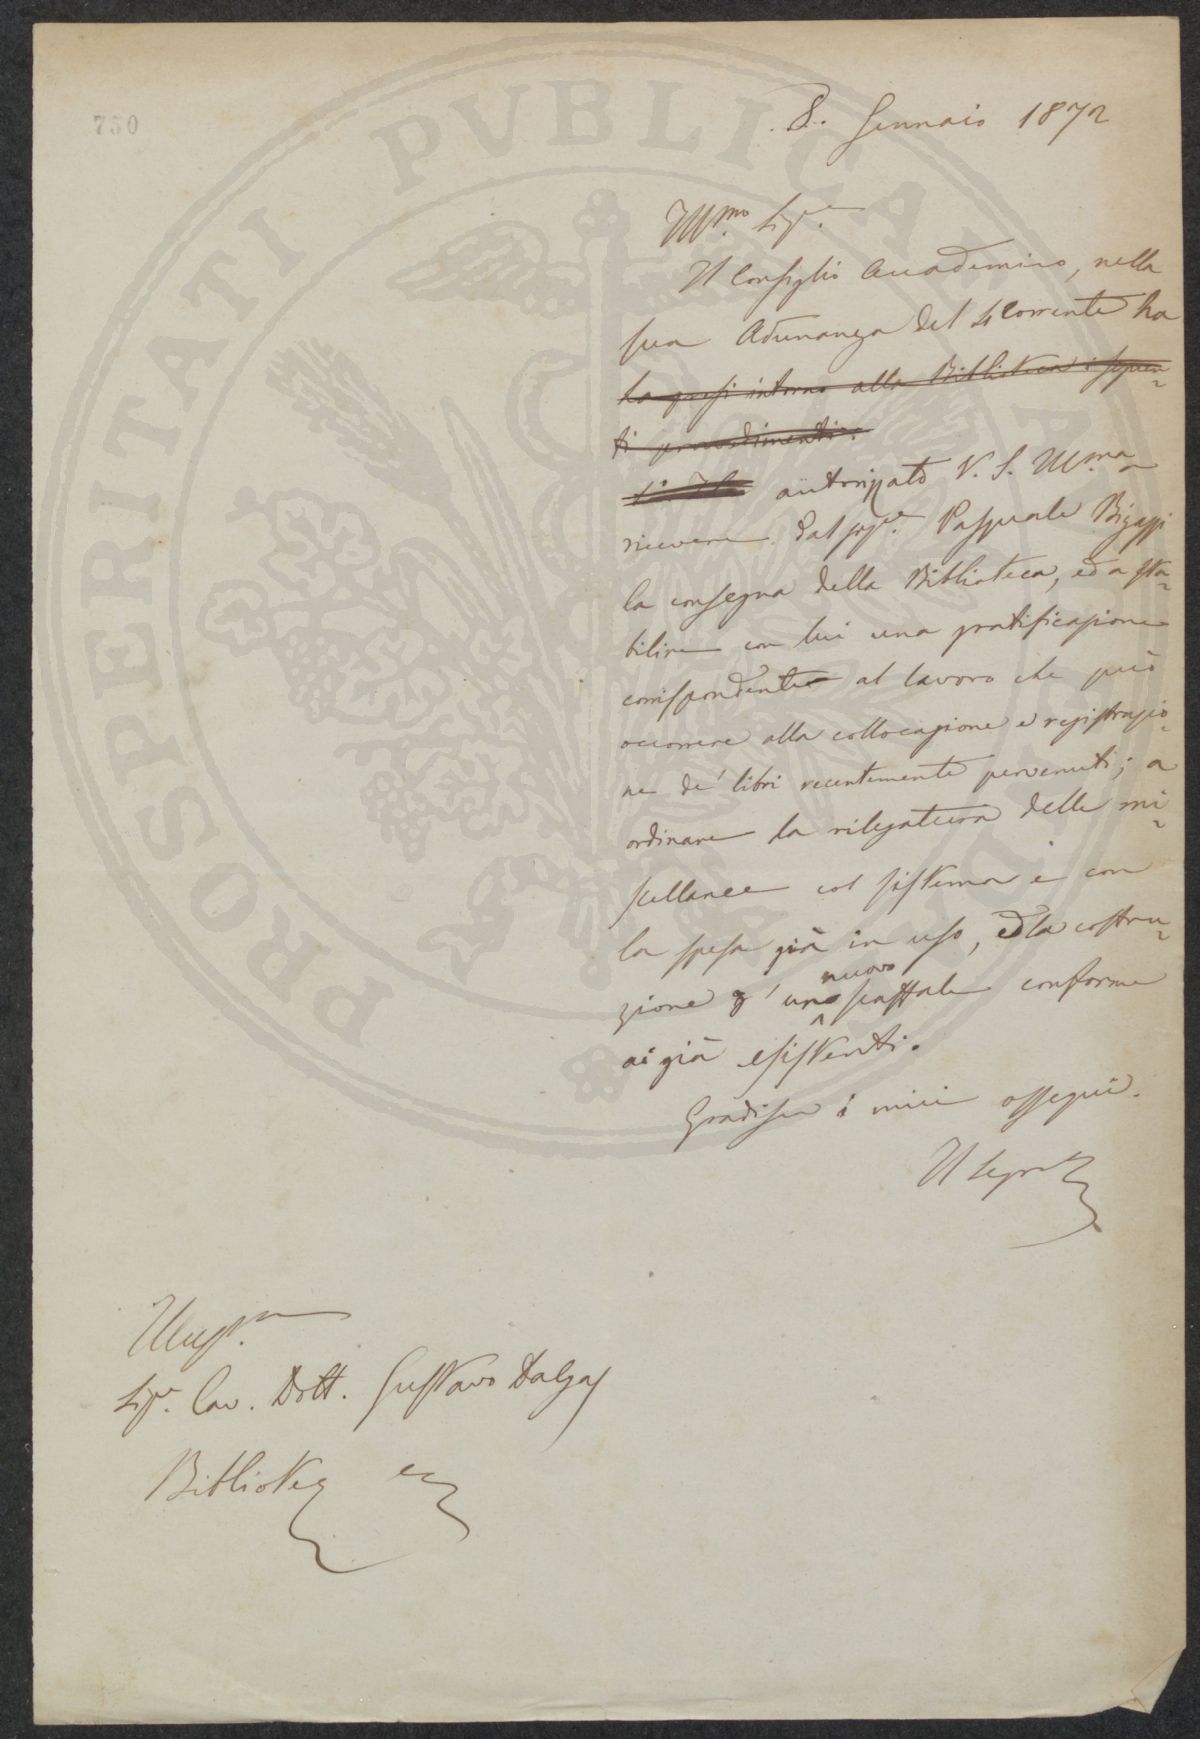 750
8. Gennaio 1872
Ill.mo Sig.e
Il Consiglio Accademico, nella
sua Adunanza del 4 Corrente ha
ha presi intorno alla Biblioteca i seguen-
ti provvedimenti:
1º autorizzato V. S. Ill.ma a
ricevere dal Sig.e Pasquale Bigazzi
la consegna della Biblioteca, ed a sta-
bilire con lui una gratificazione
corrispondente al lavoro che può
occorrere alla collocazione e registrazio-
ne de' libri recentemente pervenuti; a
ordinare la rilegatura delle mi-
scellanee col sistema e con
la spesa già in uso, ed la costru-
zione d'uno nuovo scaffale conforme
ai già esistenti.
Gradisca i miei ossequi.
Il Segr.
Illust.
Sig.r Cav. Dott. Gustavo Dalgas
Bibliotec
PROSPERITATI PVBLICAE AVGENDAE